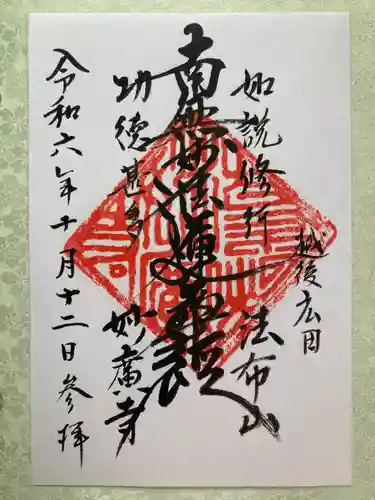 如説修行
越後広田
法布山
南無妙法蓮華経
功徳甚多
妙廣寺
令和六年十月十二日参拝